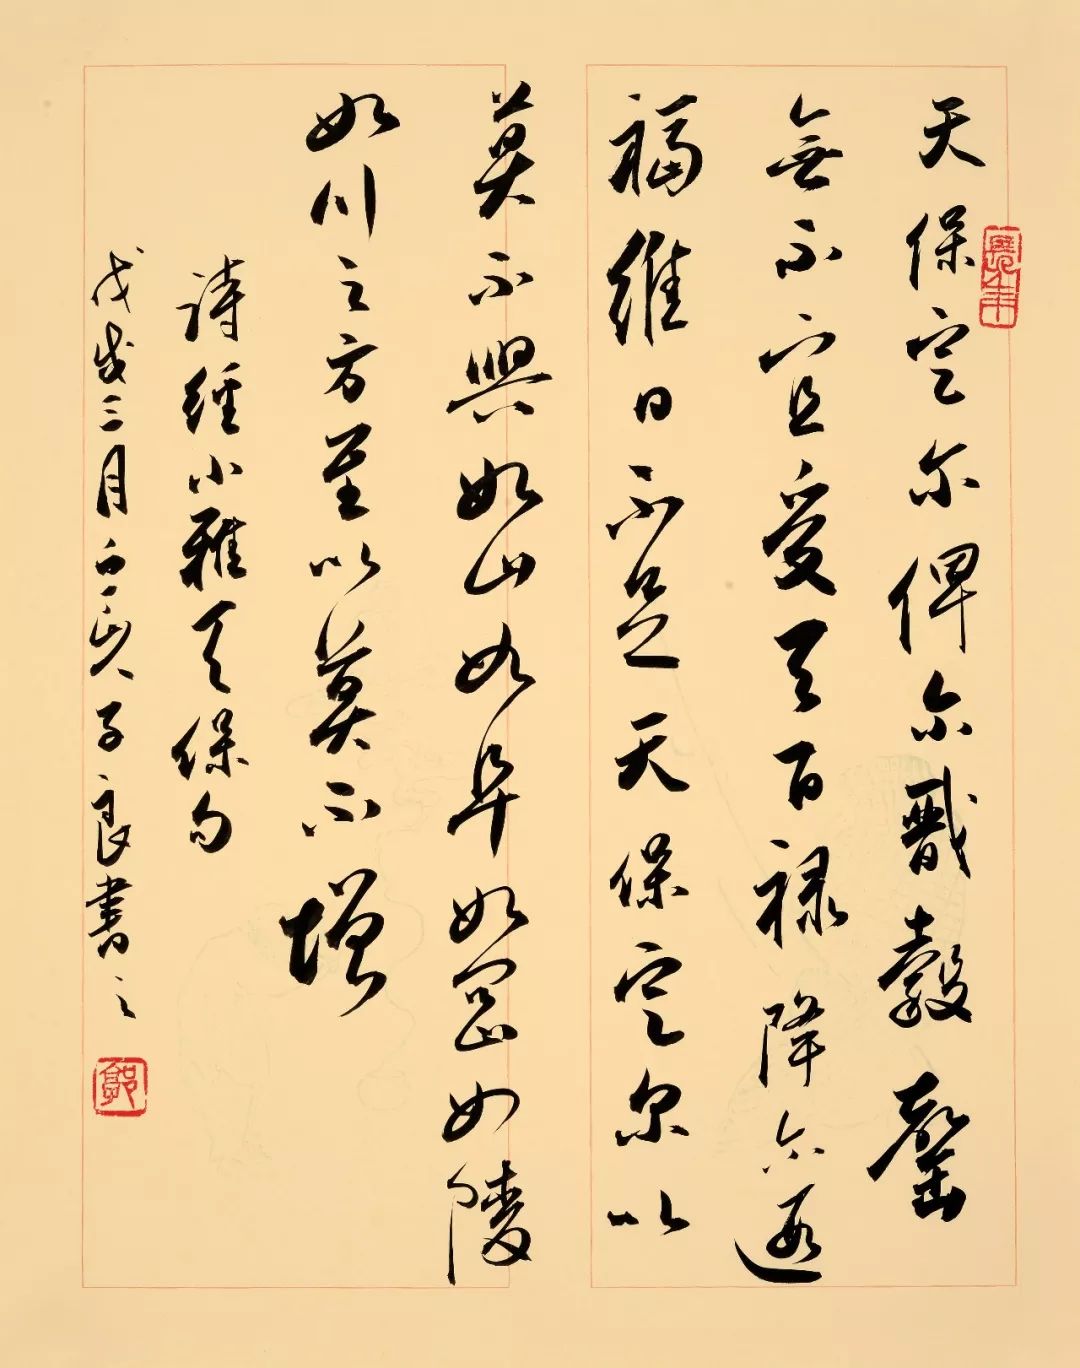 天保定尔俾尔戩穀罄
無不宜受天百禄降尔遐
福維日不足天保定尔以
莫不興如山如阜如岡如陵
如川之方至以莫不增
詩經小雅天保句
戊戌三月子良書之